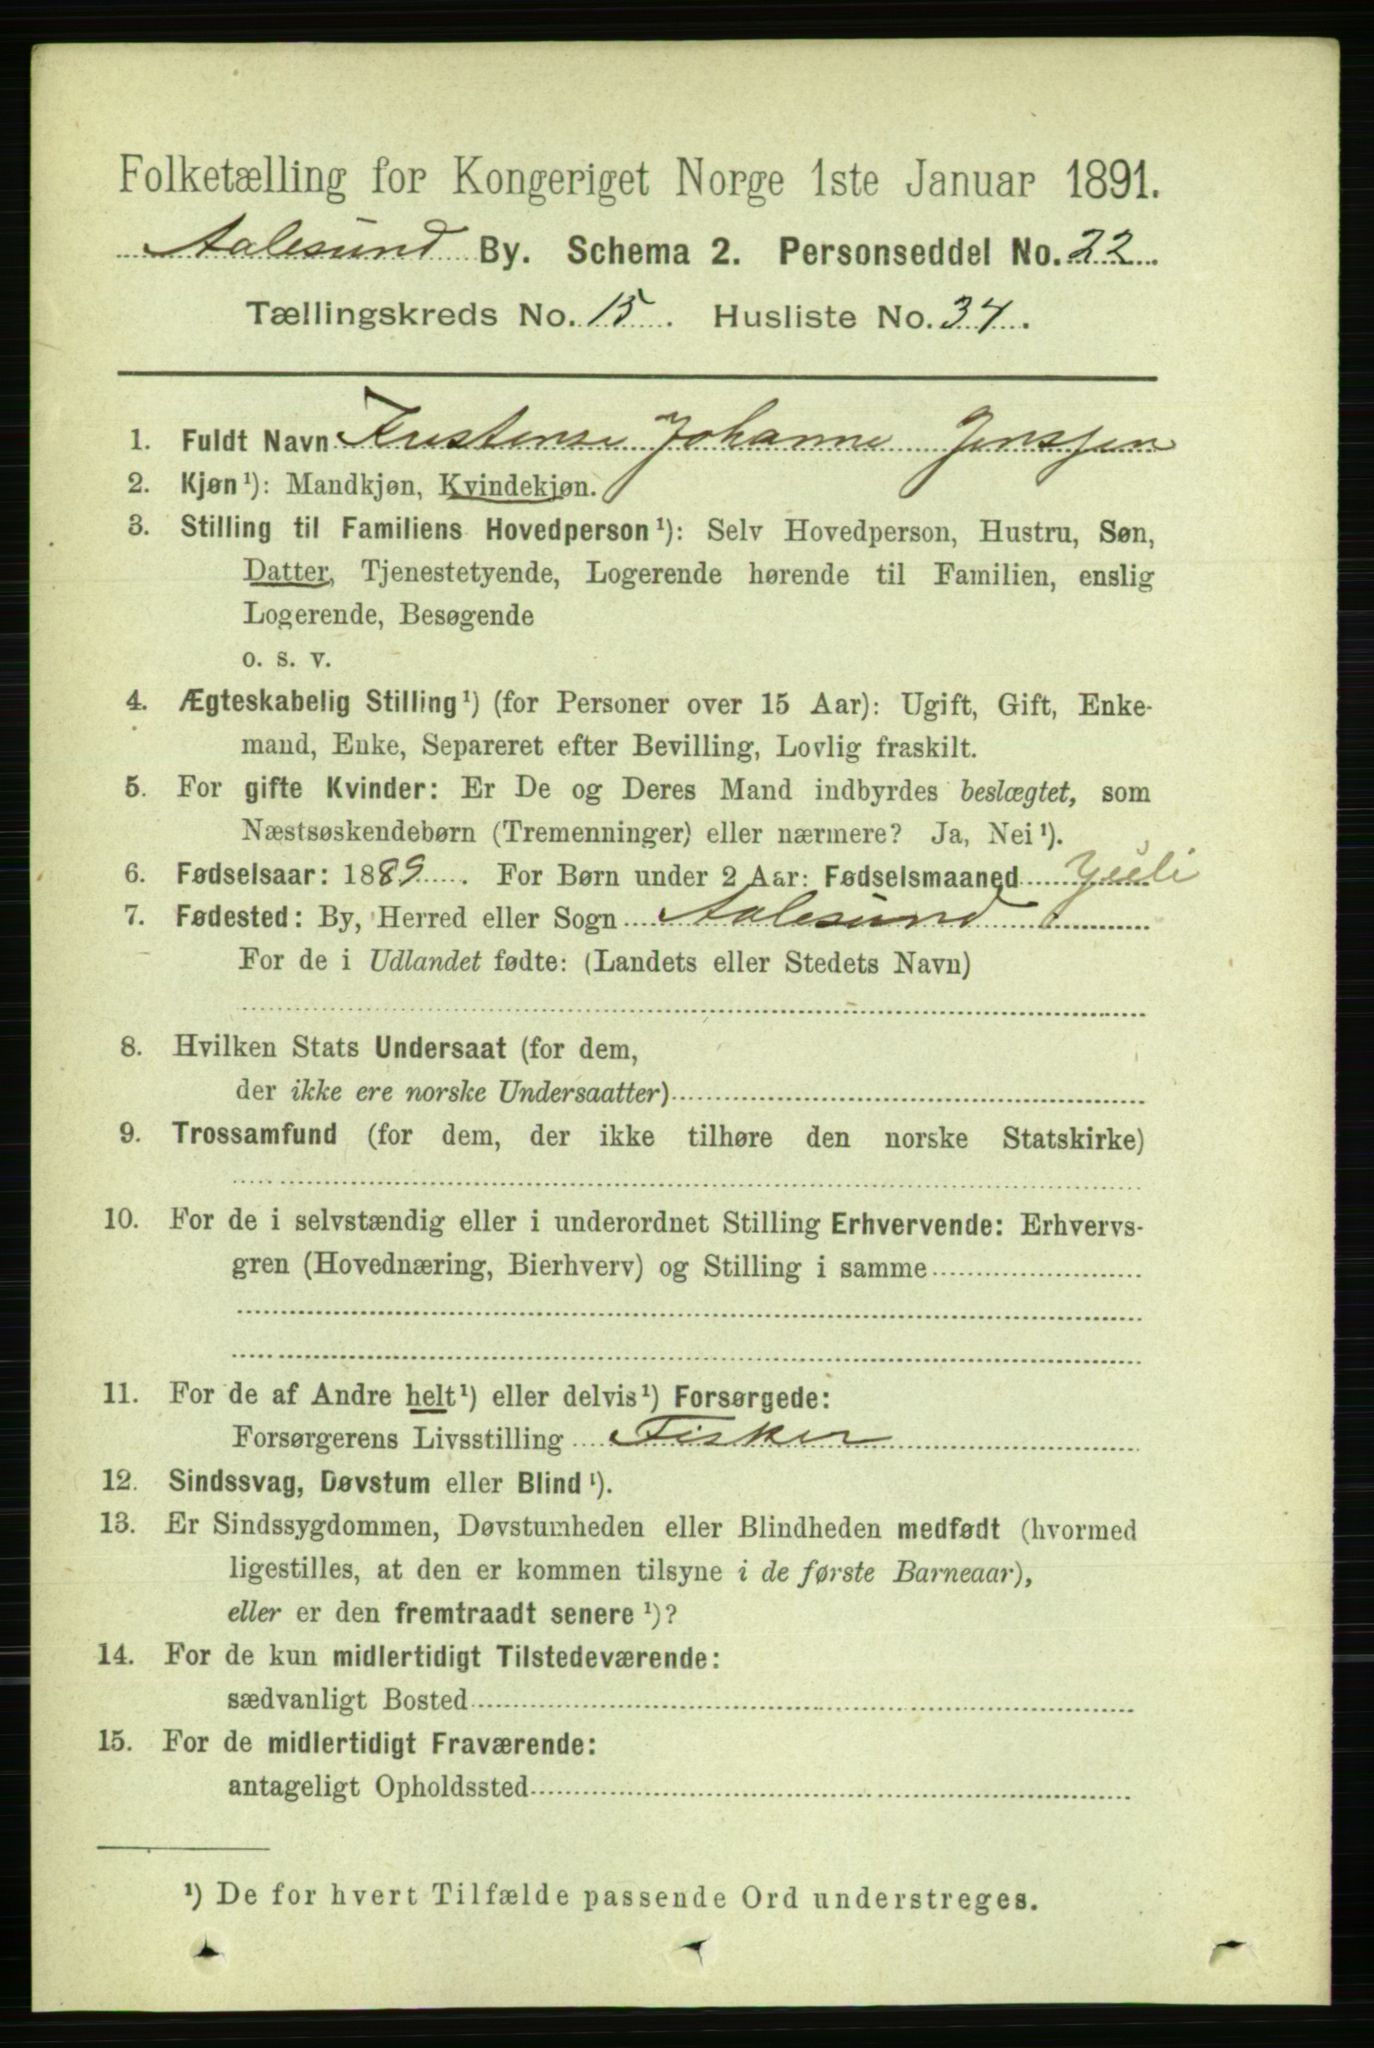 Folketælling for Kongeriget Norge 1ste Januar 1891.
Aalesund By. Schema 2. Personseddel No. 22
Tællingskreds No. 15. Husliste No. 34.
1. Fuldt Navn Kristense Johanne Jenssen
2. Kjøn¹): Mandkjøn, Kvindekjøn.
3. Stilling til Familiens Hovedperson¹): Selv Hovedperson, Hustru, Søn,
Datter, Tjenestetyende, Logerende hørende til Familien, enslig
Logerende, Besøgende
o. s. v.
4. Ægteskabelig Stilling¹) (for Personer over 15 Aar): Ugift, Gift, Enke-
mand, Enke, Separeret efter Bevilling, Lovlig fraskilt.
5. For gifte Kvinder: Er De og Deres Mand indbyrdes beslægtet, som
Næstsøskendebørn (Tremenninger) eller nærmere? Ja, Nei¹).
6. Fødselsaar: 1889. For Børn under 2 Aar: Fødselsmaaned Juli
7. Fødested: By, Herred eller Sogn Aalesund
For de i Udlandet fødte: (Landets eller Stedets Navn)
8. Hvilken Stats Undersaat (for dem,
der ikke ere norske Undersaatter)
9. Trossamfund (for dem, der ikke tilhøre den norske Statskirke)
10. For de i selvstændig eller i underordnet Stilling Erhvervende: Erhvervs-
gren (Hovednæring, Bierhverv) og Stilling i samme
11. For de af Andre helt¹) eller delvis¹) Forsørgede:
Forsørgerens Livsstilling Fisker
12. Sindssvag, Døvstum eller Blind¹).
13. Er Sindssygdommen, Døvstumheden eller Blindheden medfødt (hvormed
ligestilles, at den er kommen tilsyne i de første Barneaar),
eller er den fremtraadt senere¹)?
14. For de kun midlertidigt Tilstedeværende:
sædvanligt Bosted
15. For de midlertidigt Fraværende:
antageligt Opholdssted
¹) De for hvert Tilfælde passende Ord understreges.